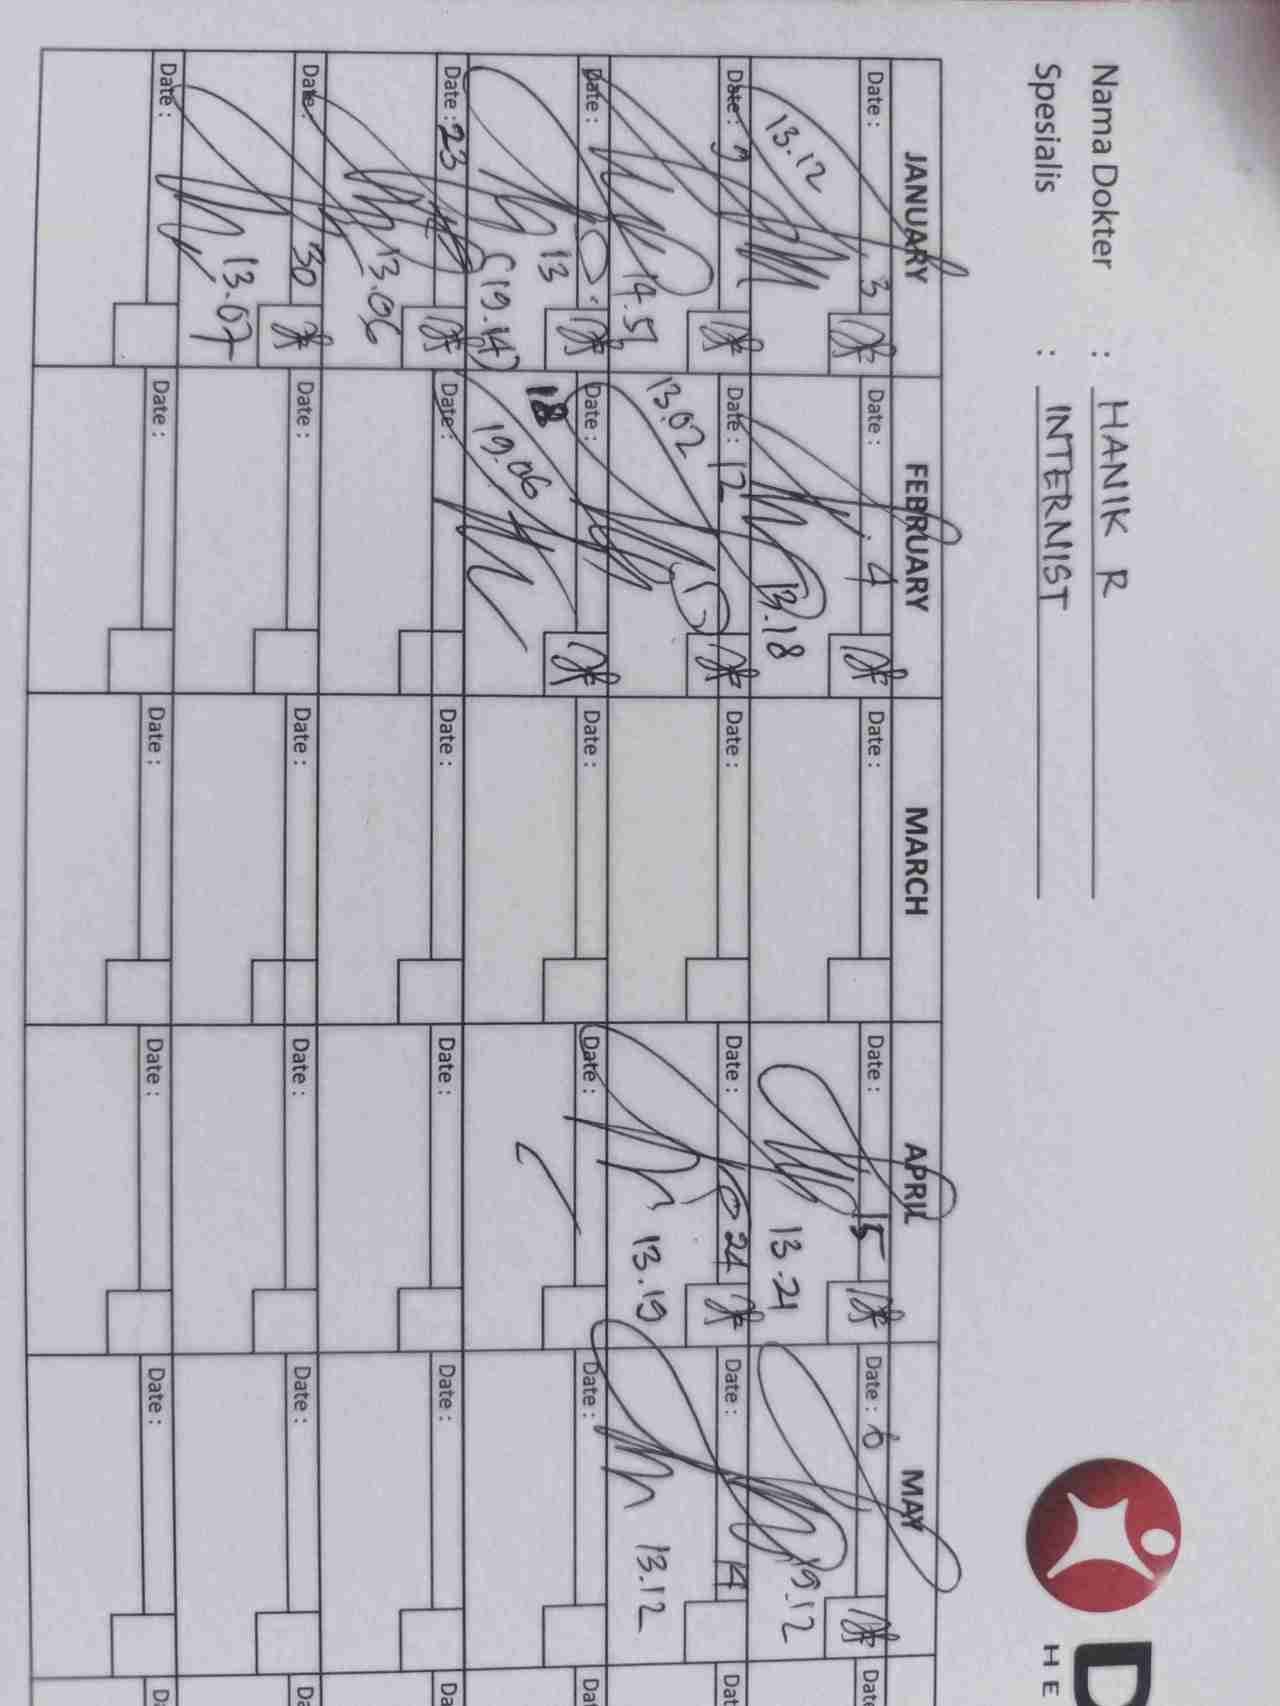 Nama Dokter : HANIK R
Spesialis : INTERNIST
D
HE
JANUARY FEBRUARY MARCH APRIL MAY
Date : 3 Date : 4 Date : Date : 15 Date : 6 Date
13.12 13.18 13.21 19.12
Date : 9 Date : 12 Date : Date : 24 Date : 14 Dat
14.51 13.02 13.19 13.12
Date : 13 Date : 18 Date : Date : Date : Dat
(19.14) 19.06
Date : 23 Date : Date : Date : Date : Da
13.06
Date : 30 Date : Date : Date : Date : Da
13.07
Date : Date : Date : Date : Date : Da